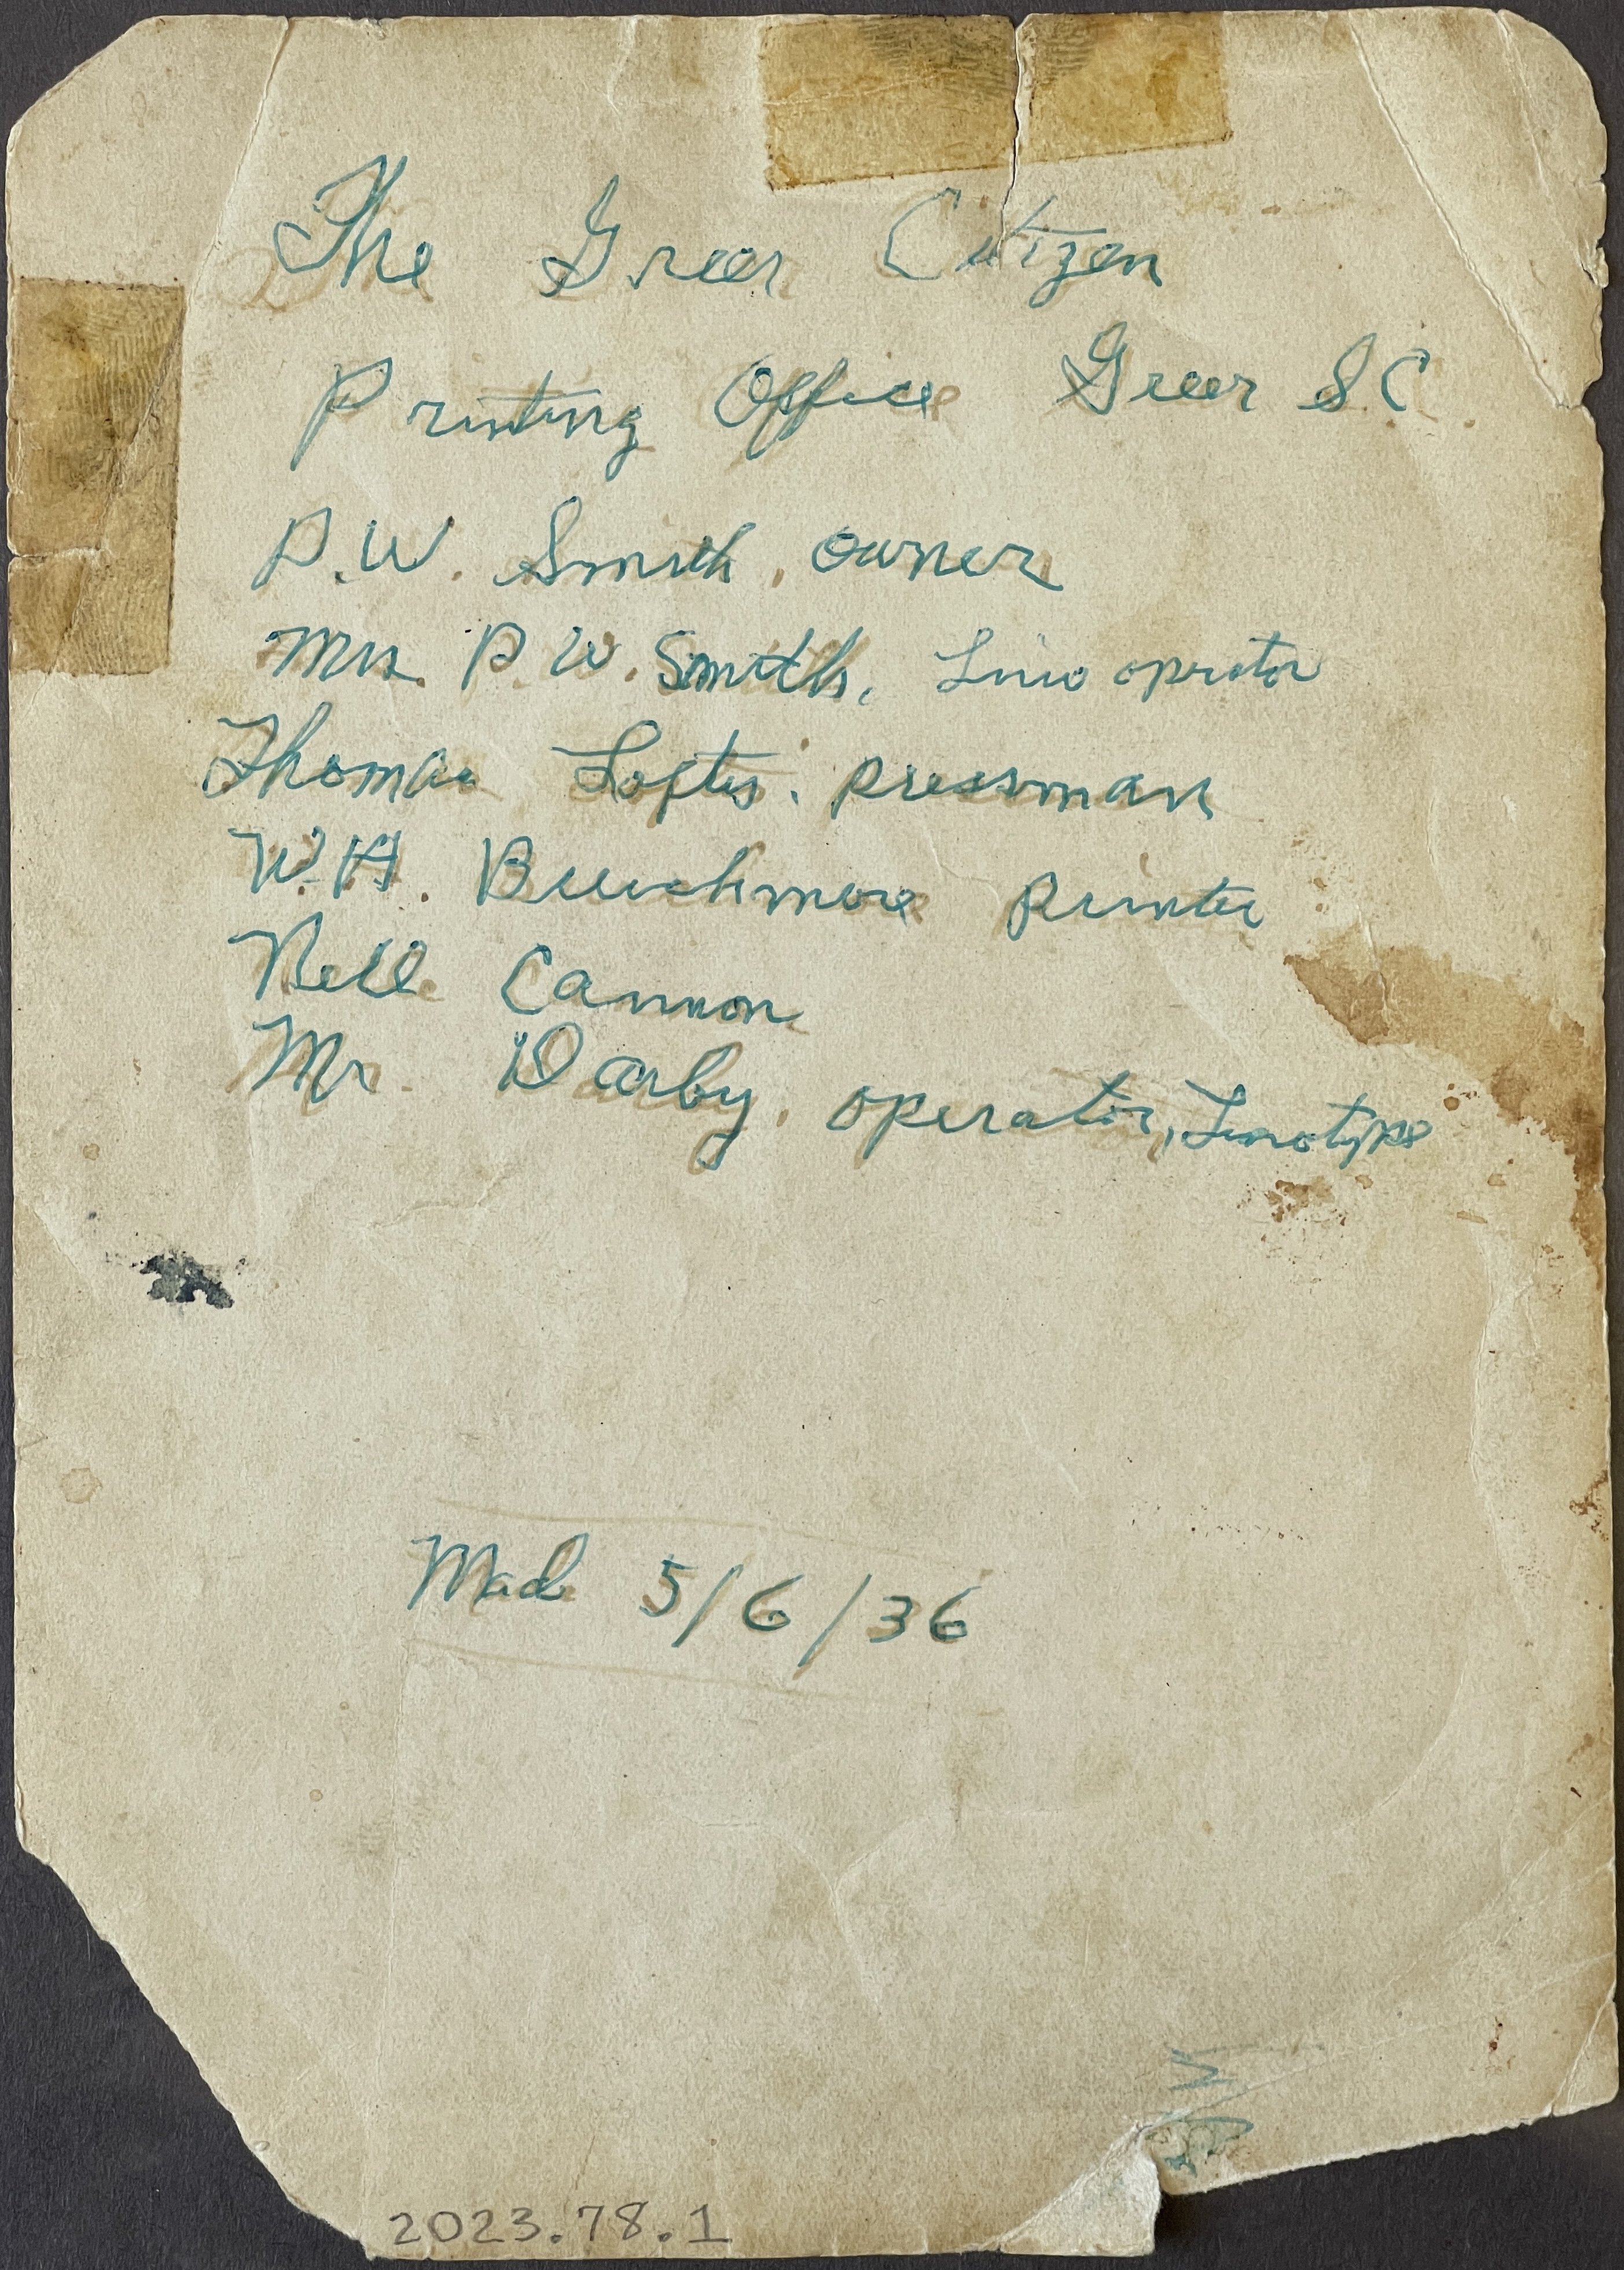 The Greer Citizen
Printing Office Greer S C
P. W. Smith, owner
Mrs. P. W. Smith, Lino oprator
Thomas Loftis. pressman
W. H. printer
Nell Cannon
Mr. Darby, operator, Linotype
Made 5/6/36
2023.78.1